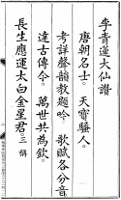 李青蓮大仙讚
唐朝名士。天寶騷人。
考詳聲韻教題吟。歌賦各分音
達古傳今。萬世共為欽。
長生應運太白金星君三稱